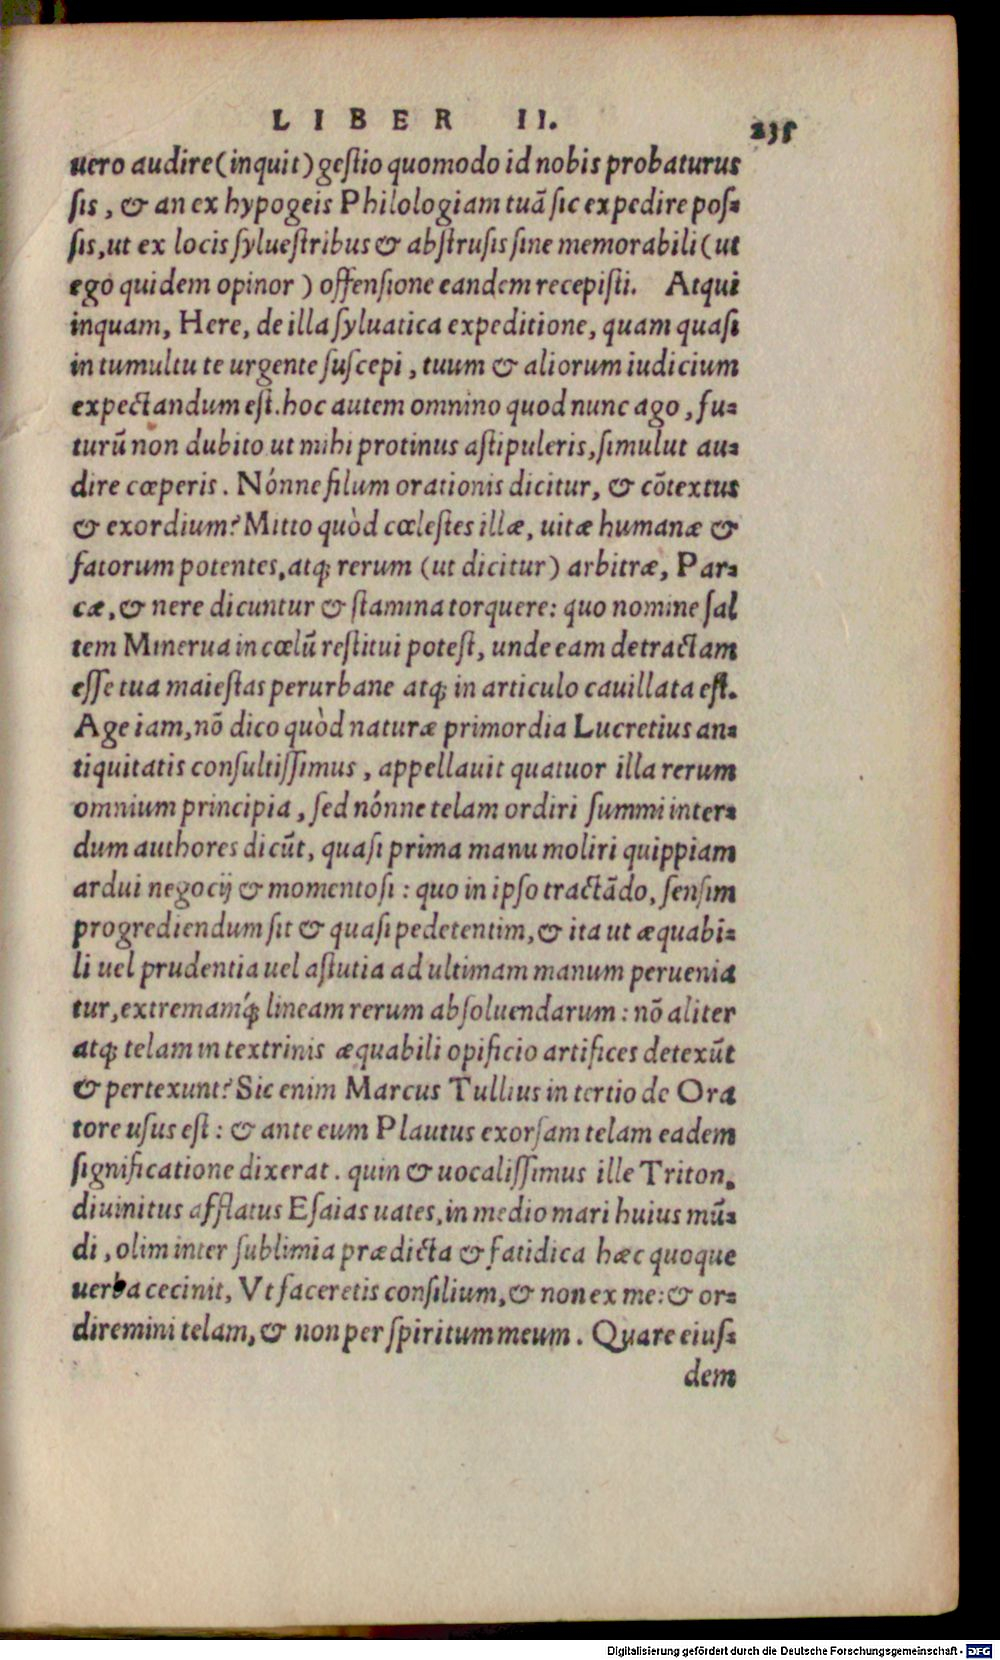 LIBER II. 235
uero audire (inquit) geſtio quomodo id nobis probaturus
ſis, & an ex hypogeis Philologiam tuã ſic expedire poſ=
ſis, ut ex locis ſylueſtribus & abſtruſis ſine memorabili (ut
ego quidem opinor) offenſione eandem recepiſti. Atqui
inquam, Here, de illa ſyluatica expeditione, quam quaſi
in tumultu te urgente ſuſcepi, tuum & aliorum iudicium
expectandum eſt. hoc autem omnino quod nunc ago, fu=
turũ non dubito ut mihi protinus aſtipuleris, ſimulut au=
dire cœperis. Nónne filum orationis dicitur, & cõtextus
& exordium? Mitto quòd cœleſtes illæ, uitæ humanæ &
fatorum potentes, atq; rerum (ut dicitur) arbitræ, Par=
cæ, & nere dicuntur & ſtamina torquere: quo nomine ſal
tem Minerua in cœlũ reſtitui poteſt, unde eam detractam
eſſe tua maieſtas perurbane atq; in articulo cauillata eſt.
Age iam, nõ dico quòd naturæ primordia Lucretius an=
tiquitatis conſultiſſimus, appellauit quatuor illa rerum
omnium principia, ſed nónne telam ordiri ſummi inter=
dum authores dicũt, quaſi prima manu moliri quippiam
ardui negocij & momentoſi: quo in ipſo tractãdo, ſenſim
progrediendum ſit & quaſi pedetentim, & ita ut æquabi=
li uel prudentia uel aſtutia ad ultimam manum peruenia
tur, extremamq́; lineam rerum abſoluendarum: nõ aliter
atq; telam in textrinis æquabili opificio artifices detexũt
& pertexunt? Sic enim Marcus Tullius in tertio de Ora
tore uſus eſt: & ante eum Plautus exorſam telam eadem
ſignificatione dixerat. quin & uocaliſſimus ille Triton,
diuinitus afflatus Eſaias uates, in medio mari huius mũ=
di, olim inter ſublimia prædicta & fatidica hæc quoque
uerba cecinit, Vt faceretis conſilium, & non ex me: & or=
diremini telam, & non per ſpiritum meum. Quare eiuſ=
dem
Digitalisierung gefördert durch die Deutsche Forschungsgemeinschaft - DFG